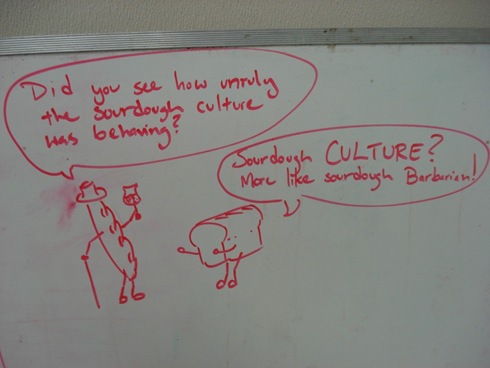 Did you see how unruly
the sourdough culture
was behaving?
Sourdough CULTURE?
More like sourdough Barbarian!